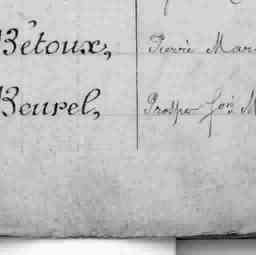 Bétoux, Pierre Mar
Beurel, Prosper Fçois M